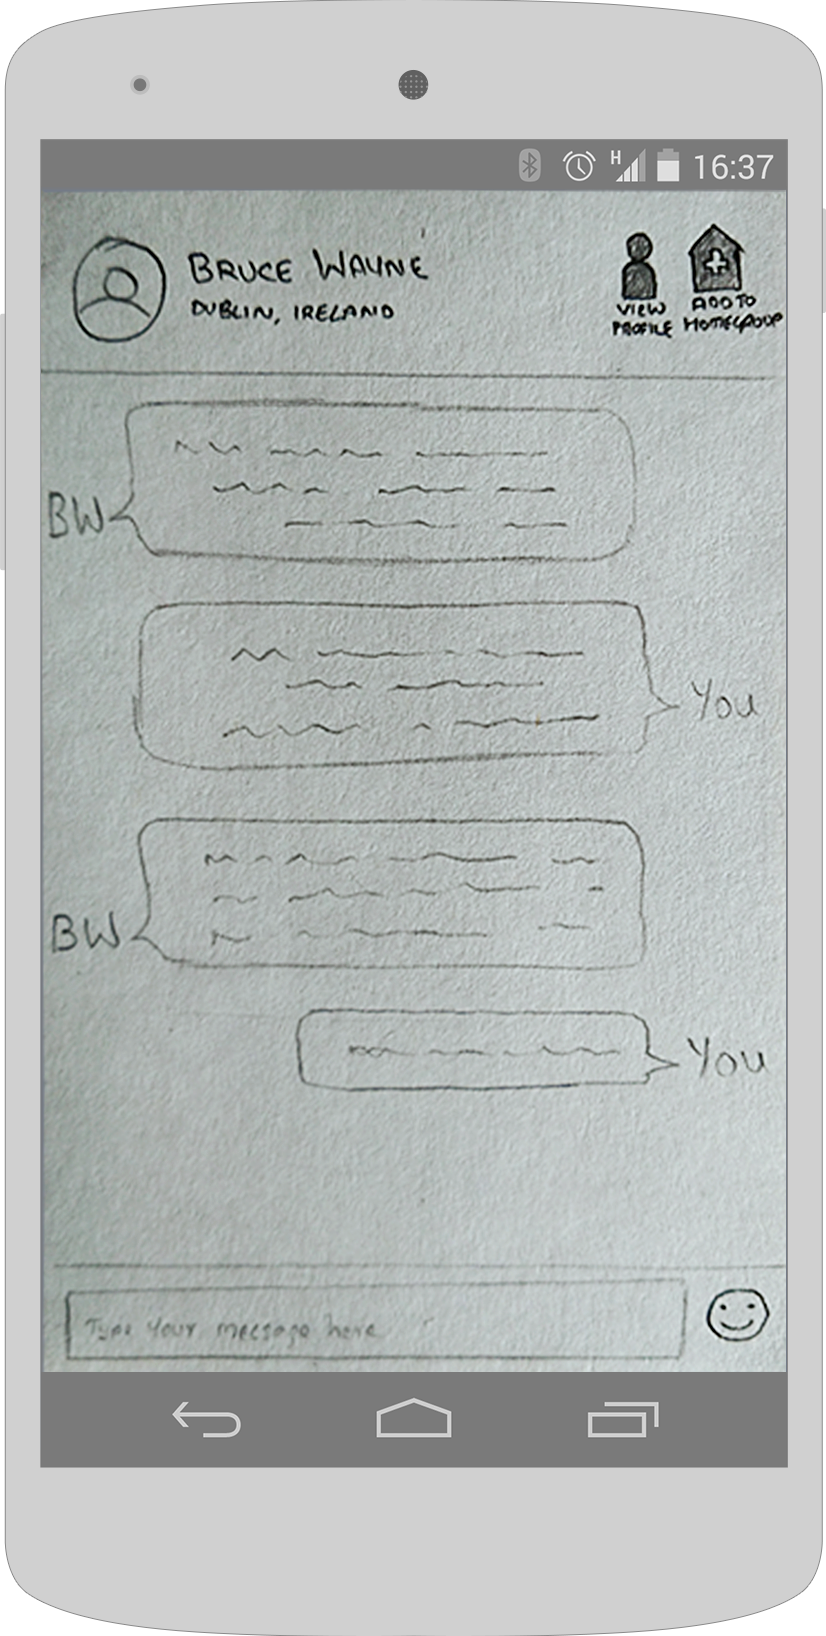 H 16:37
BRUCE WAYNE
DUBLIN, IRELAND
VIEW PROFILE
ADD TO HOMEGROUP
BW
You
BW
You
Type your message here